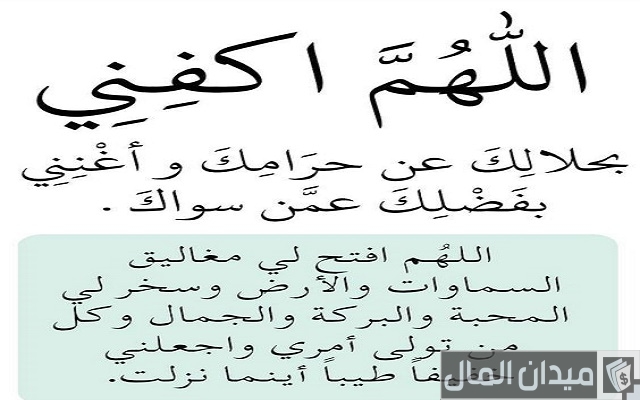 اللّٰهُمَّ اكفِنِي
بحلالِكَ عن حرَامِكَ و أغْنِنِي
بفَضْلِكَ عمَّن سواكَ .
اللهُم افتح لي مغاليق
السماوات والأرض وسخر لي
المحبة والبركة والجمال وكل
من تولى أمري واجعلني
طيباً أينما نزلت.
ميدان المال